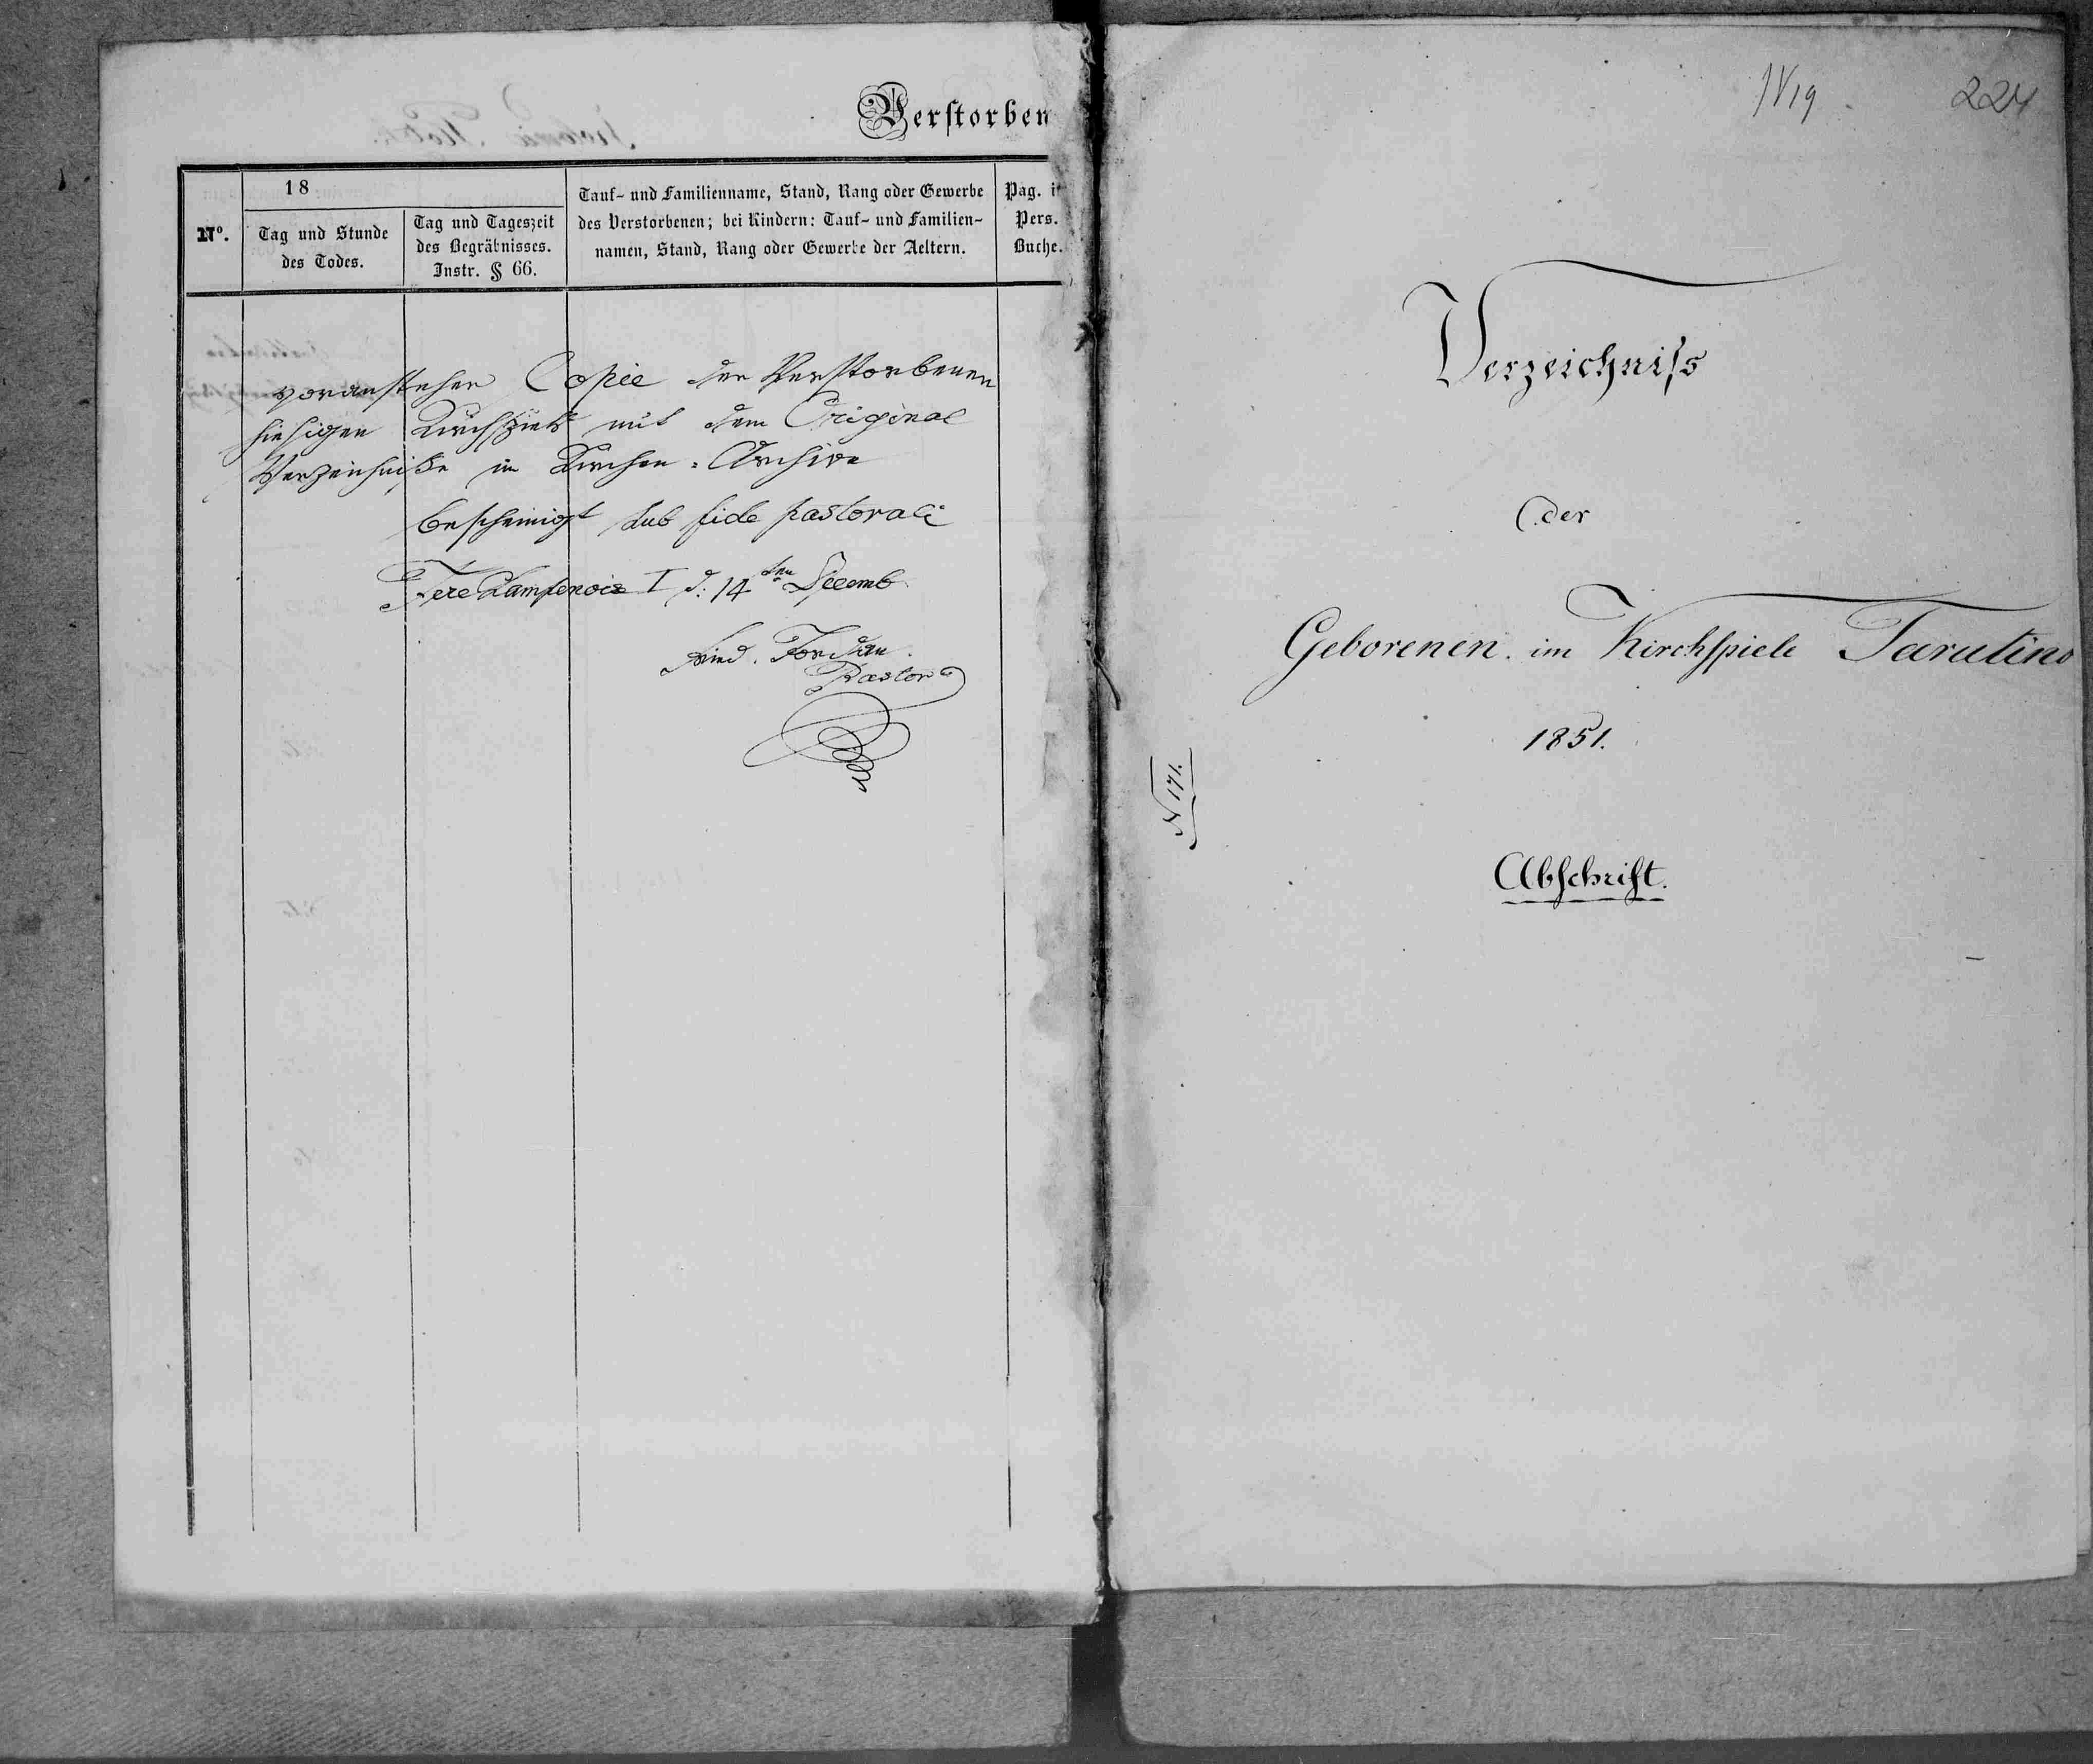 Verstorben
18
Nº.
Tag und Stunde
des Todes.
Tag und Tageszeit
des Begräbnisses.
Instr. § 66.
Tauf- und Familienname, Stand, Rang oder Gewerbe
des Verstorbenen; bei Kindern: Tauf- und Familien-
namen, Stand, Rang oder Gewerbe der Aeltern.
Pag. i
Pers.
Buche.
voranstehen Copie der Verstorbenen
hiesigen Kirchspiels mit dem Original
Verzeichniße im Kirchen-Archive
bescheinigt sub fide pastorali
Fere Champenoise I d: 14ten Decemb
Fried. Pastor
224
Verzeichniſs
der
Geborenen. im Kirchſpiele Tarutino
1851.
N 171.
Abſchrift.